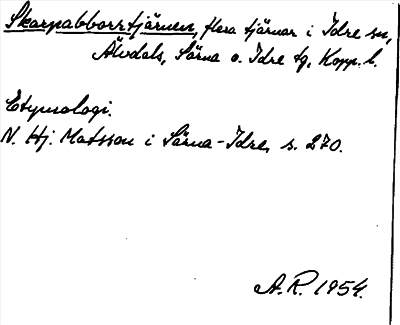 Skarpabborrtjärnen, flera tjärnar i Idre sn,
Älvdals, Särna o. Idre tg, Kopp. l.
Etymologi.
N. Hj. Matsson i Särna-Idre, s. 270.
A. R. 1954.